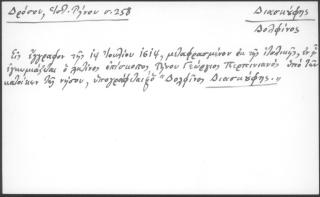 Δρόσου, Ἱστ. Τήνου σ. 258
Διασκύφης
Δολφῖνος
Εἰς ἔγγραφον τῆς 14 Ἰουλίου 1614, μεταφρασμένον ἐκ τῆς ἰταλικῆς, ἐν ᾧ
ἐγκωμιάζεται ὁ λατῖνος ἐπίσκοπος Τήνου Γεώργιος Περπινιάνης ὑπὸ τῶν
κατοίκων τῆς νήσου, ὑπογράφεται ὁ "Δολφῖνος Διασκύφης."